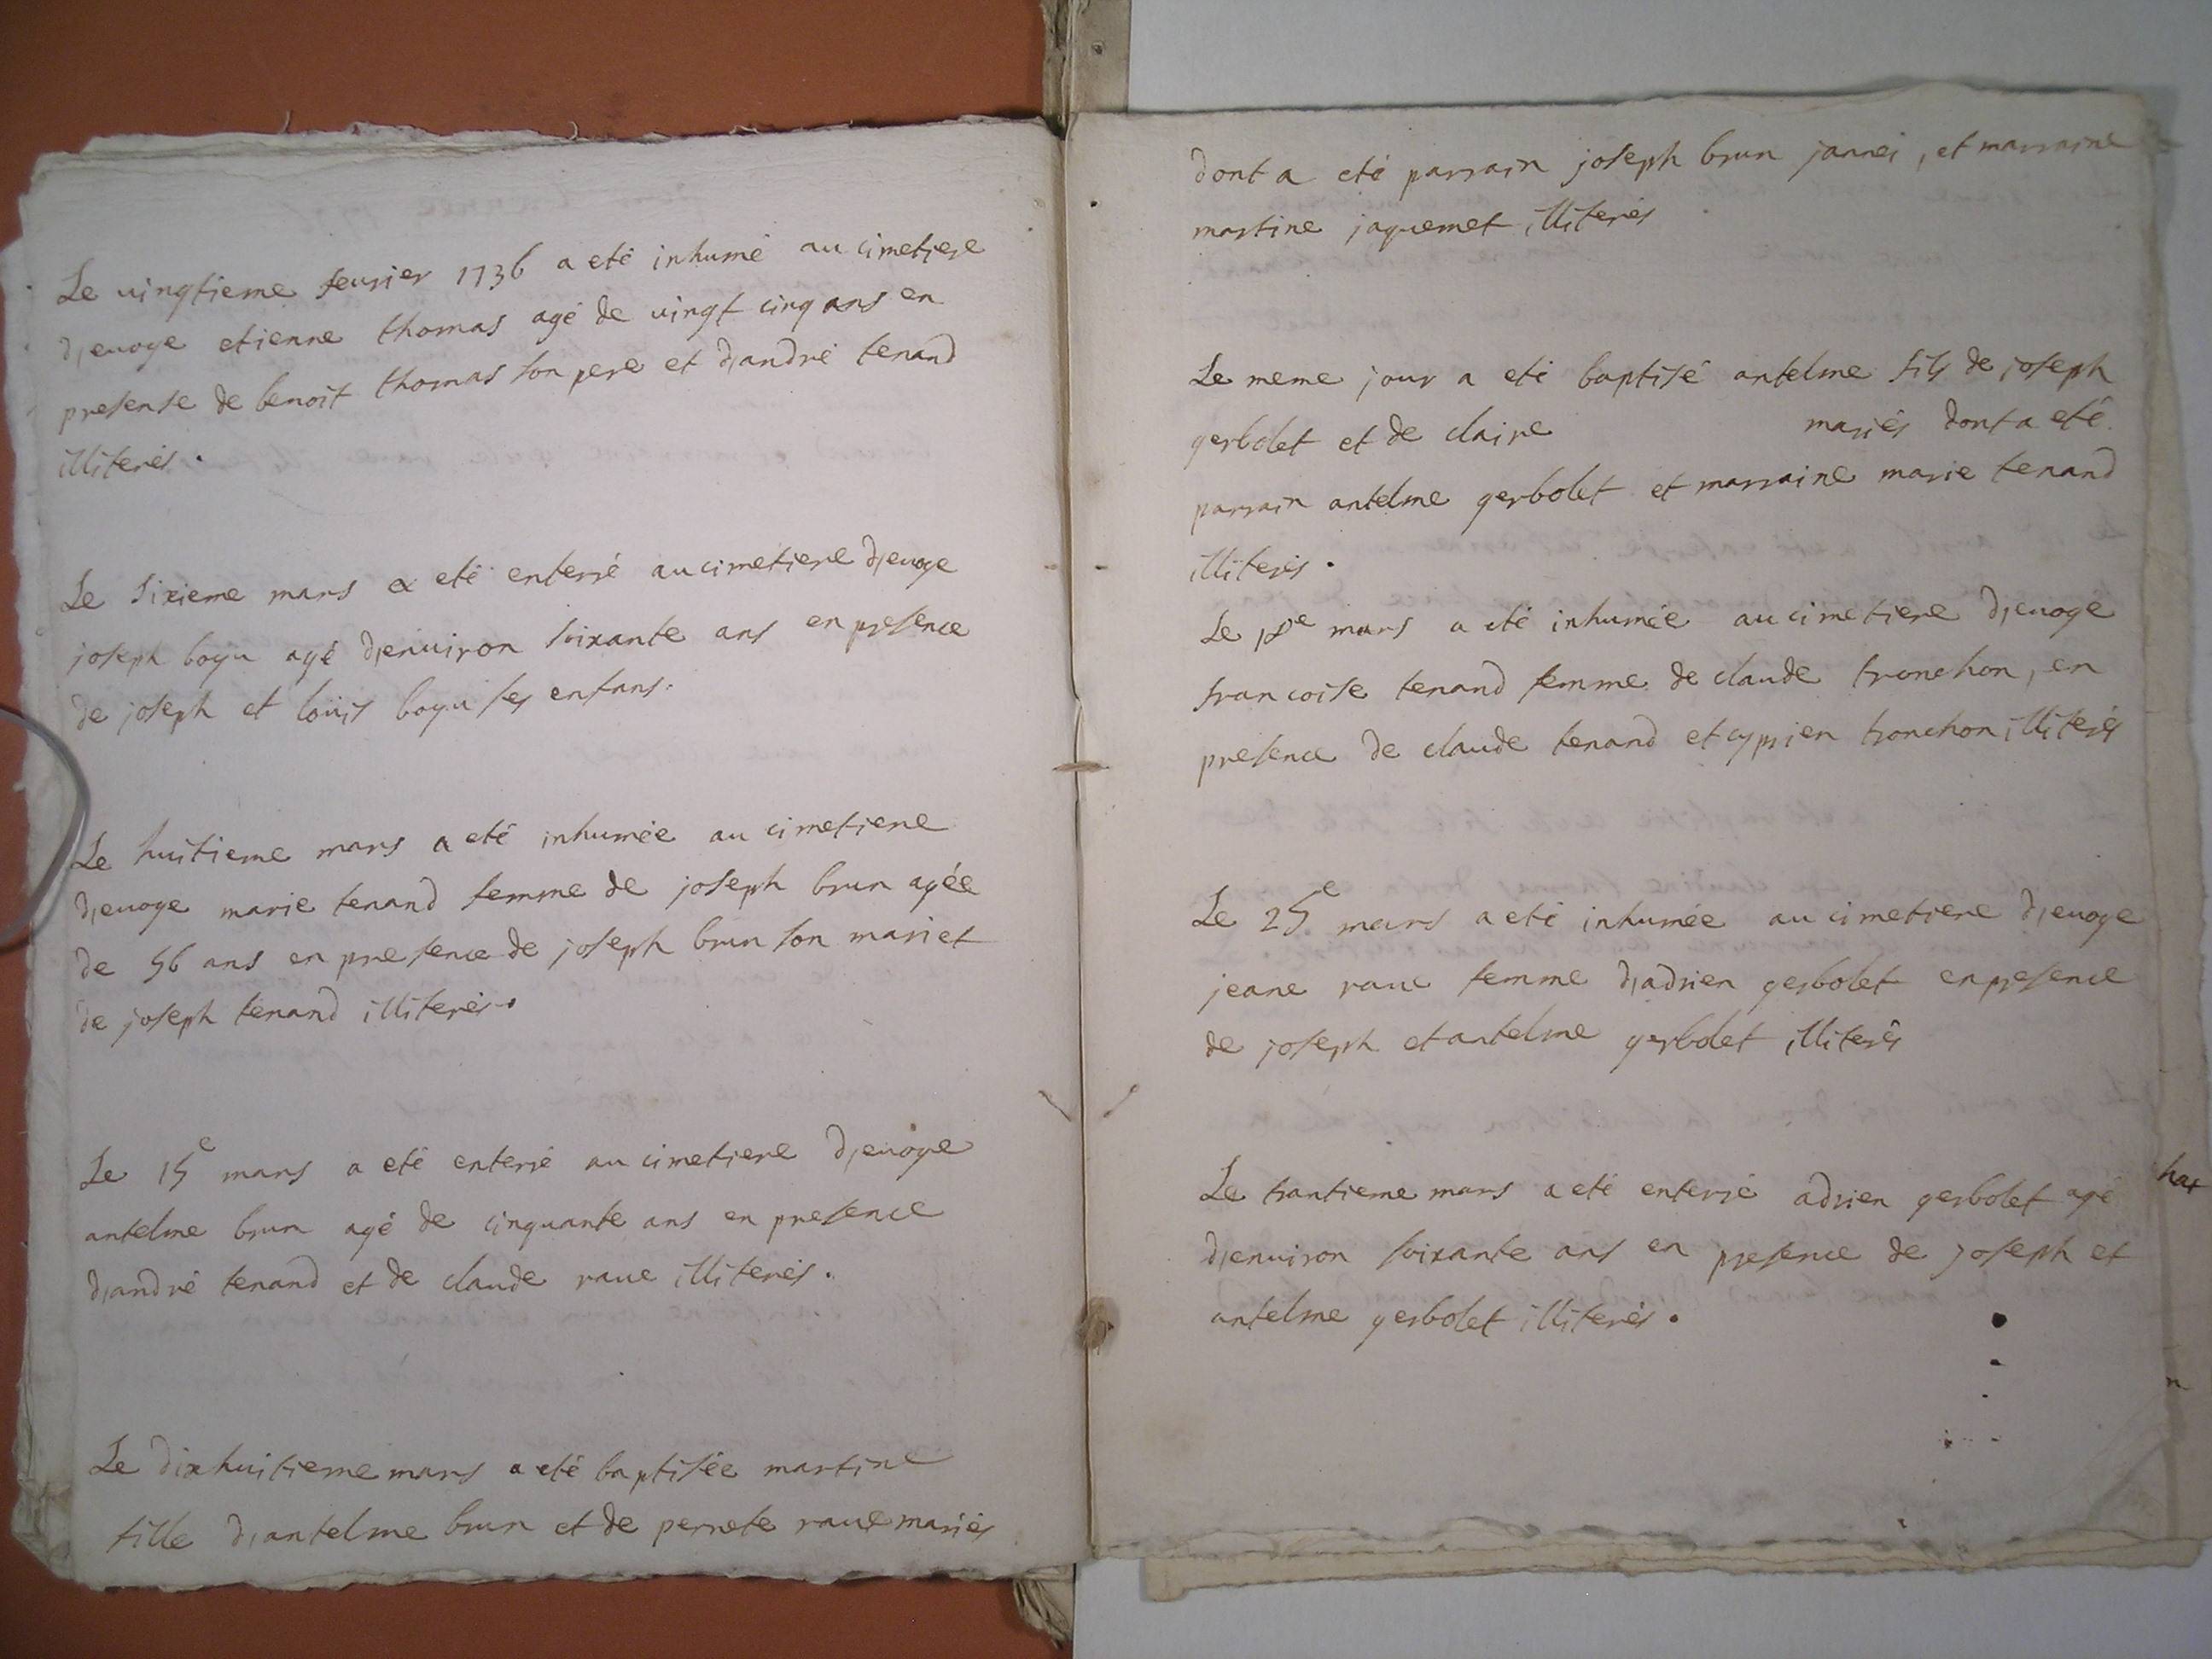 Le uingtieme feurier 1736 a eté inhumé au cimetiere
d'euoge etienne thomas agé de uingt cinq ans en
presense de benoit thomas son pere et d'andré tenand
illiterés.
Le sixieme mars a eté enterré au cimetiere d'euoge
joseph bogu agé d'enuiron soixante ans en presence
de joseph et louis bogu ses enfans.
Le huitieme mars a eté inhumée au cimetiere
d'euoge marie tenand femme de joseph brun agée
de 56 ans en presence de joseph brun son mari et
de joseph tenand illiterés.
Le 15e mars a eté enterré au cimetiere d'euoge
antelme brun agé de cinquante ans en presence
d'andré tenand et de claude raue illiterés.
Le dixhuitieme mars a eté baptisée martine
fille d'antelme brun et de perrete raue mariés
dont a eté parrain joseph brun jannei, et marraine
martine jaquemet illiterés
Le meme jour a eté baptisé antelme fils de joseph
gerbolet et de claire mariés dont a eté
parrain antelme gerbolet et marraine marie tenand
illiterés.
Le 18e mars a eté inhumée au cimetiere d'euoge
francoise tenand femme de claude tronchon, en
presence de claude tenand et cyprien tronchon illiterés
Le 25e mars a eté inhumée au cimetiere d'euoge
jeane raue femme d'adrien gerbolet en presence
de joseph et antelme gerbolet illiterés
Le trantieme mars a eté enterré adrien gerbolet agé
d'enuiron soixante ans en presence de joseph et
antelme gerbolet illiterés.